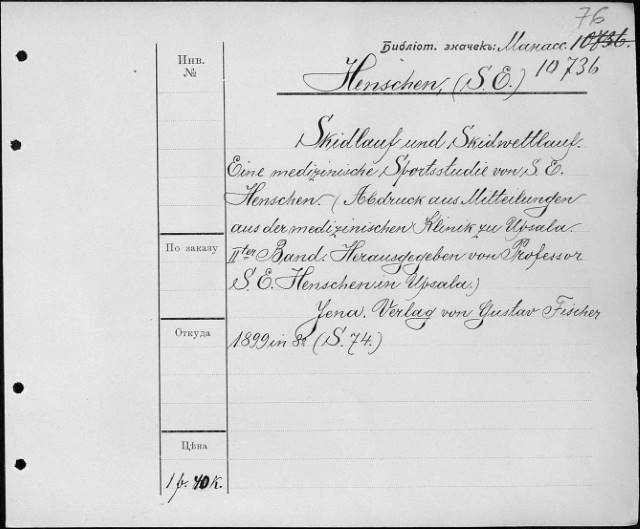 76
Библіот. значекъ: Манасс. 10736.
10736
Инв.
№
Henschen, (S. E.)
Skidlauf und Skidwettlauf.
Eine medizinische Sportsstudie von S. E.
Henschen. (Abdruck aus Mitteilungen
aus der medizinischen Klinik zu Upsala.
IIter Band. Herausgegeben von Professor
S. E. Henschen in Upsala.)
Jena. Verlag von Gustav Fischer
1899 in 8º (S. 74.)
По заказу
Откуда
Цѣна
1 р. 40 к.